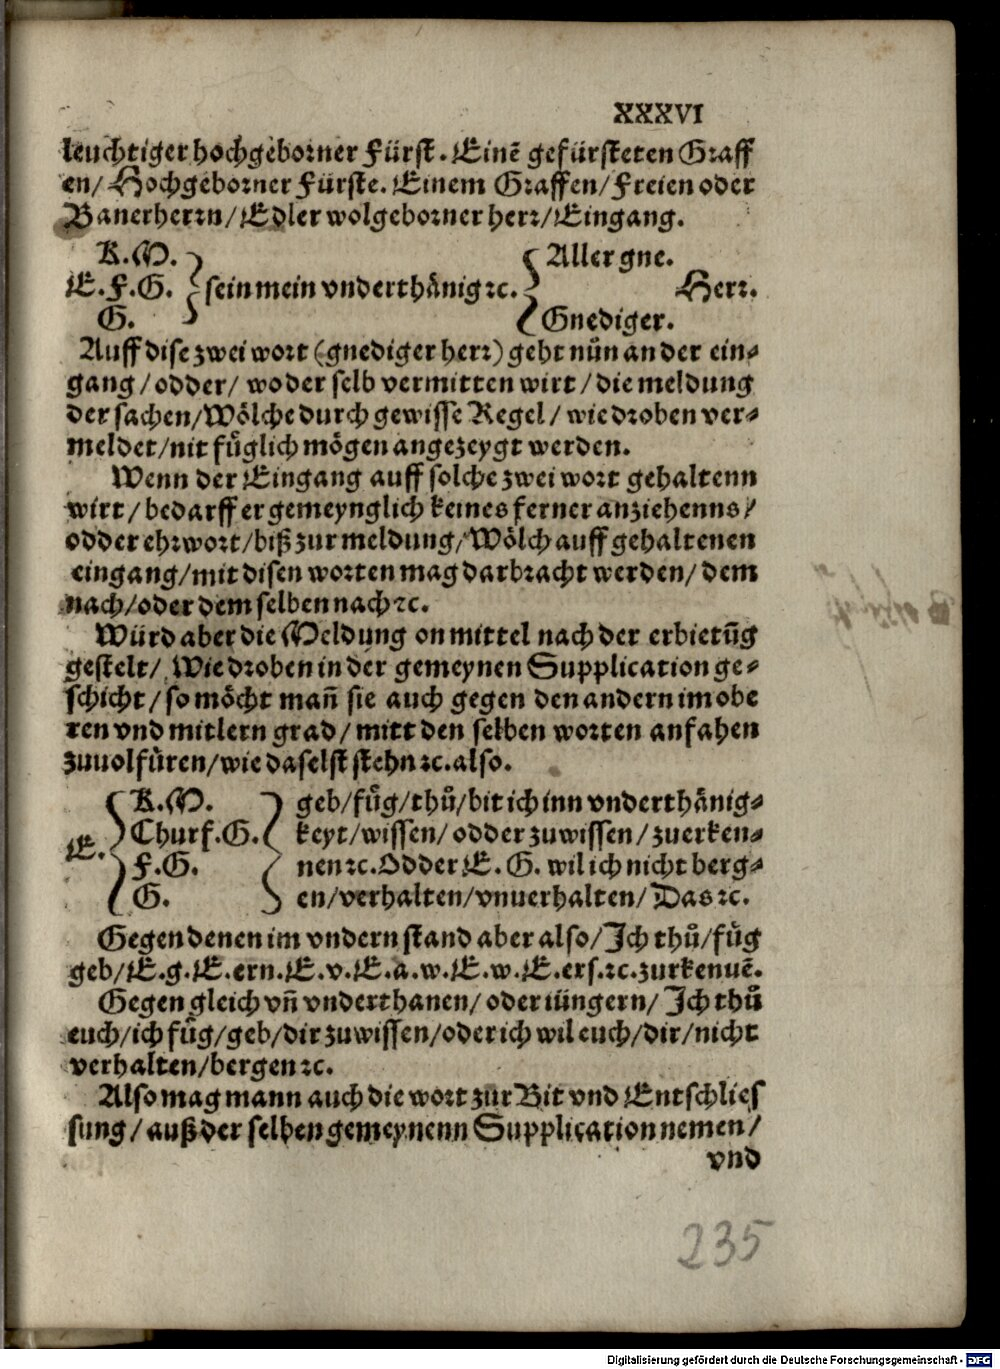 XXXVI
leuchtiger hochgeborner Fürst. Einē gefürsteten Graff
en/ Hochgeborner Fürste. Einem Graffen/ Freien oder
Banerherrn/ Edler wolgeborner herr/ Eingang.
K. M. Allergne.
E. F. G. sein mein vnderthånig ꝛc. Herr.
G. Gnediger.
Auff dise zwei wort (gnediger herr) geht nůn an der ein⸗
gang/ odder/ wo der selb vermitten wirt/ die meldung
der sachen/ Wölche durch gewisse Regel/ wie droben ver⸗
meldet/ nit fůglich mögen angezeygt werden.
Wenn der Eingang auff solche zwei wort gehaltenn
wirt/ bedarff er gemeynglich keines ferner anziehenns/
odder ehrwort/ biß zur meldung/ Wölch auff gehaltenen
eingang/ mit disen worten mag darbracht werden/ dem
nach/ oder dem selben nach ꝛc.
Würd aber die Meldung on mittel nach der erbietūg
gestelt/ Wie droben in der gemeynen Supplication ge⸗
schicht/ so möcht mañ sie auch gegen den andern im obe
ren vnd mitlern grad/ mitt den selben worten anfahen
zuuolfüren/ wie daselst stehn ꝛc. also.
K. M. geb/ fůg/ thů/ bit ich inn vnderthånig⸗
E. Churf. G. keyt/ wissen/ odder zuwissen/ zuerken⸗
F. G. nen ꝛc. Odder E. G. wil ich nicht berg⸗
G. en/ verhalten/ vnuerhalten/ Das ꝛc.
Gegen denen im vndern stand aber also/ Ich thů/ fůg
geb/ E. g. E. ern. E. v. E. a. w. E. w. E. ers. ꝛc. zurkenuē.
Gegen gleich vñ vnderthanen/ oder iüngern/ Ich thů
euch/ ich fůg/ geb/ dir zuwissen/ oder ich wil euch/ dir/ nicht
verhalten/ bergen ꝛc.
Also mag mann auch die wort zur Bit vnd Entschlies
sung/ auß der selben gemeynenn Supplication nemen/
vnd
235
Digitalisierung gefördert durch die Deutsche Forschungsgemeinschaft - DFG